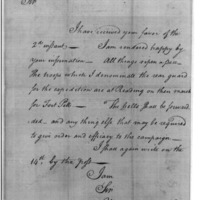 Sir
I have received your favor of the
2nd instant - I am rendered happy by
your information - All things upon a pair
The troops which I denominate the rear guard
for the expedition are at Reading on their march
for Fort Pitt - The Colts shall be forward
ed - and any thing else that may be required
to give order and efficacy to the campaign -
I shall again write on the
14th by the post -
I am
Sir